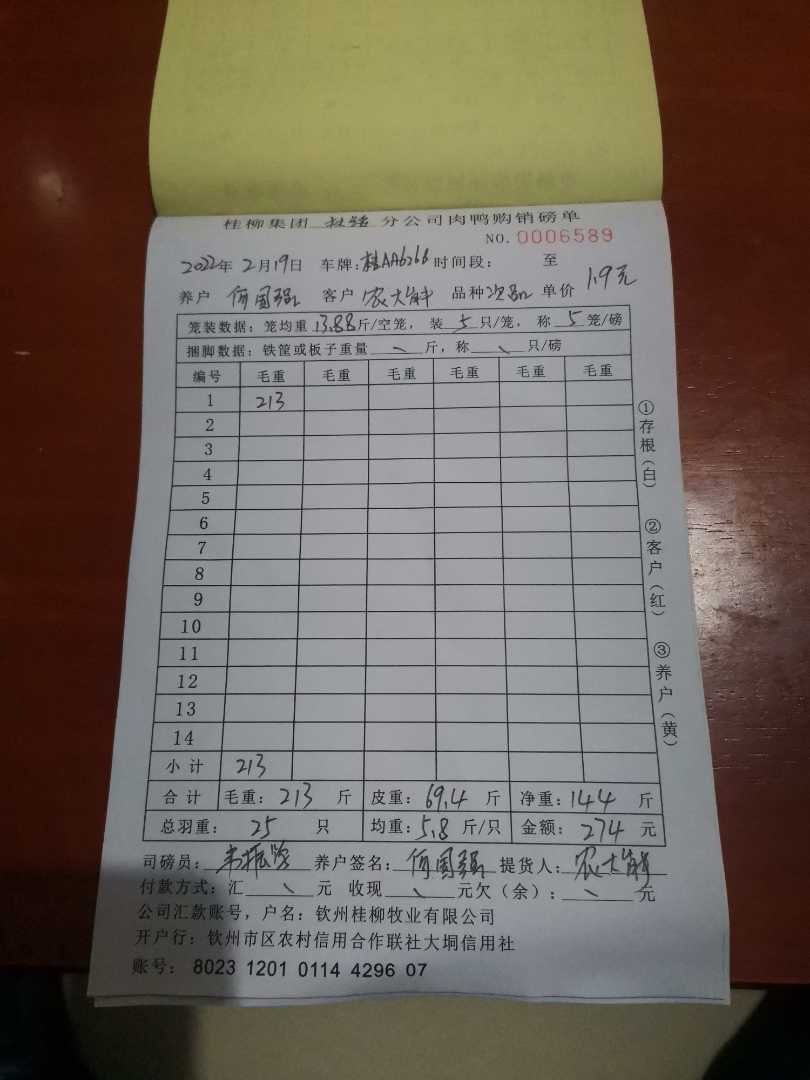 桂柳集团 分公司肉鸭购销磅单
NO. 0006589
2022年 2月19日 车牌:桂AA6266 时间段: 至
养户 何国强 客户 农大 品种 次品 单价 1.9元
笼装数据: 笼均重 13.88 斤/空笼, 装 5 只/笼, 称 5 笼/磅
捆脚数据: 铁筐或板子重量 \ 斤, 称 \ 只/磅
编号 毛重 毛重 毛重 毛重 毛重 毛重
1 213
2
3
4
5
6
7
8
9
10
11
12
13
14
小计 213
合计 毛重: 213 斤 皮重: 69.4 斤 净重: 144 斤
总羽重: 25 只 均重: 5.8 斤/只 金额: 274 元
司磅员: 韦振 养户签名: 何国强 提货人: 农大
付款方式: 汇 \ 元 收现 \ 元欠(余): \ 元
公司汇款账号, 户名: 钦州桂柳牧业有限公司
开户行: 钦州市区农村信用合作联社大垌信用社
账号: 8023 1201 0114 4296 07
①存根(白)
②客户(红)
③养户(黄)